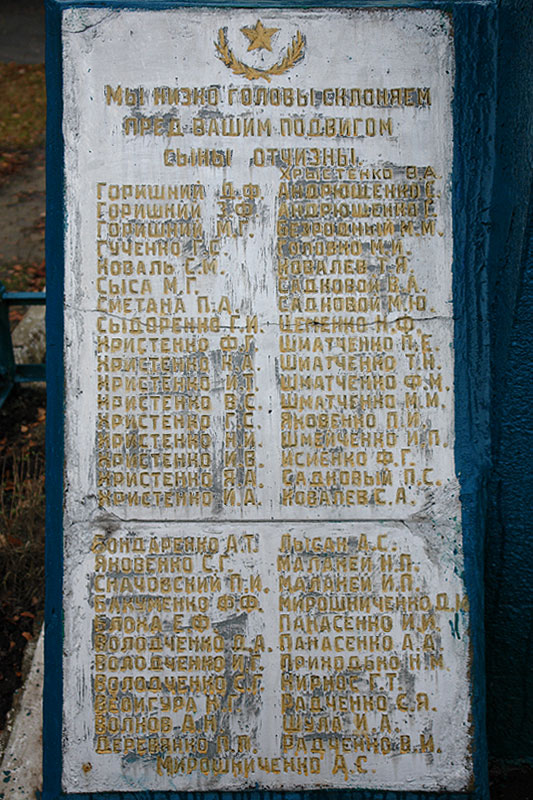 Мы низко головы склоняем
пред вашим подвигом
сыны отчизны
Горишний Д.Ф.
Горишний З.Ф.
Горишний М.Г.
Гученко Г.С.
Коваль С.М.
Сыса М.Г.
Сметана П.А.
Сыдоренко Г.И.
Христенко Ф.Г.
Христенко Н.А.
Христенко И.Т.
Христенко В.С.
Христенко Г.С.
Христенко Н.И.
Христенко И.В.
Христенко Я.А.
Христенко И.А.
Хрыстенко В.А.
Андрющенко Г.
Андрющенко С.
Безродный М.М.
Головко М.И.
Ковалев Т.Я.
Садковой В.А.
Садковой М.Ю.
Цененко Н.Ф.
Шматченко П.Е.
Шматченко Т.Н.
Шматченко Ф.М.
Шматченко М.М.
Яковенко П.И.
Швейченко И.П.
Исиенко Ф.Г.
Садковый П.С.
Ковалев С.А.
Бондаренко А.Т.
Яковенко С.Г.
Скачовский П.И.
Бакуменко Ф.Ф.
Блоха Е.Ф.
Володченко Д.А.
Володченко И.Г.
Володченко С.Г.
Веригура К.Г.
Волков А.Н.
Деревянко П.П.
Лысак А.С.
Маланей Н.П.
Маланей И.П.
Мирошниченко Д.И
Панасенко И.И.
Панасенко А.А.
Приходько Н.М.
Кирнос Г.Т.
Радченко С.Я.
Шула И.А.
Радченко В.И.
Мирошниченко А.С.